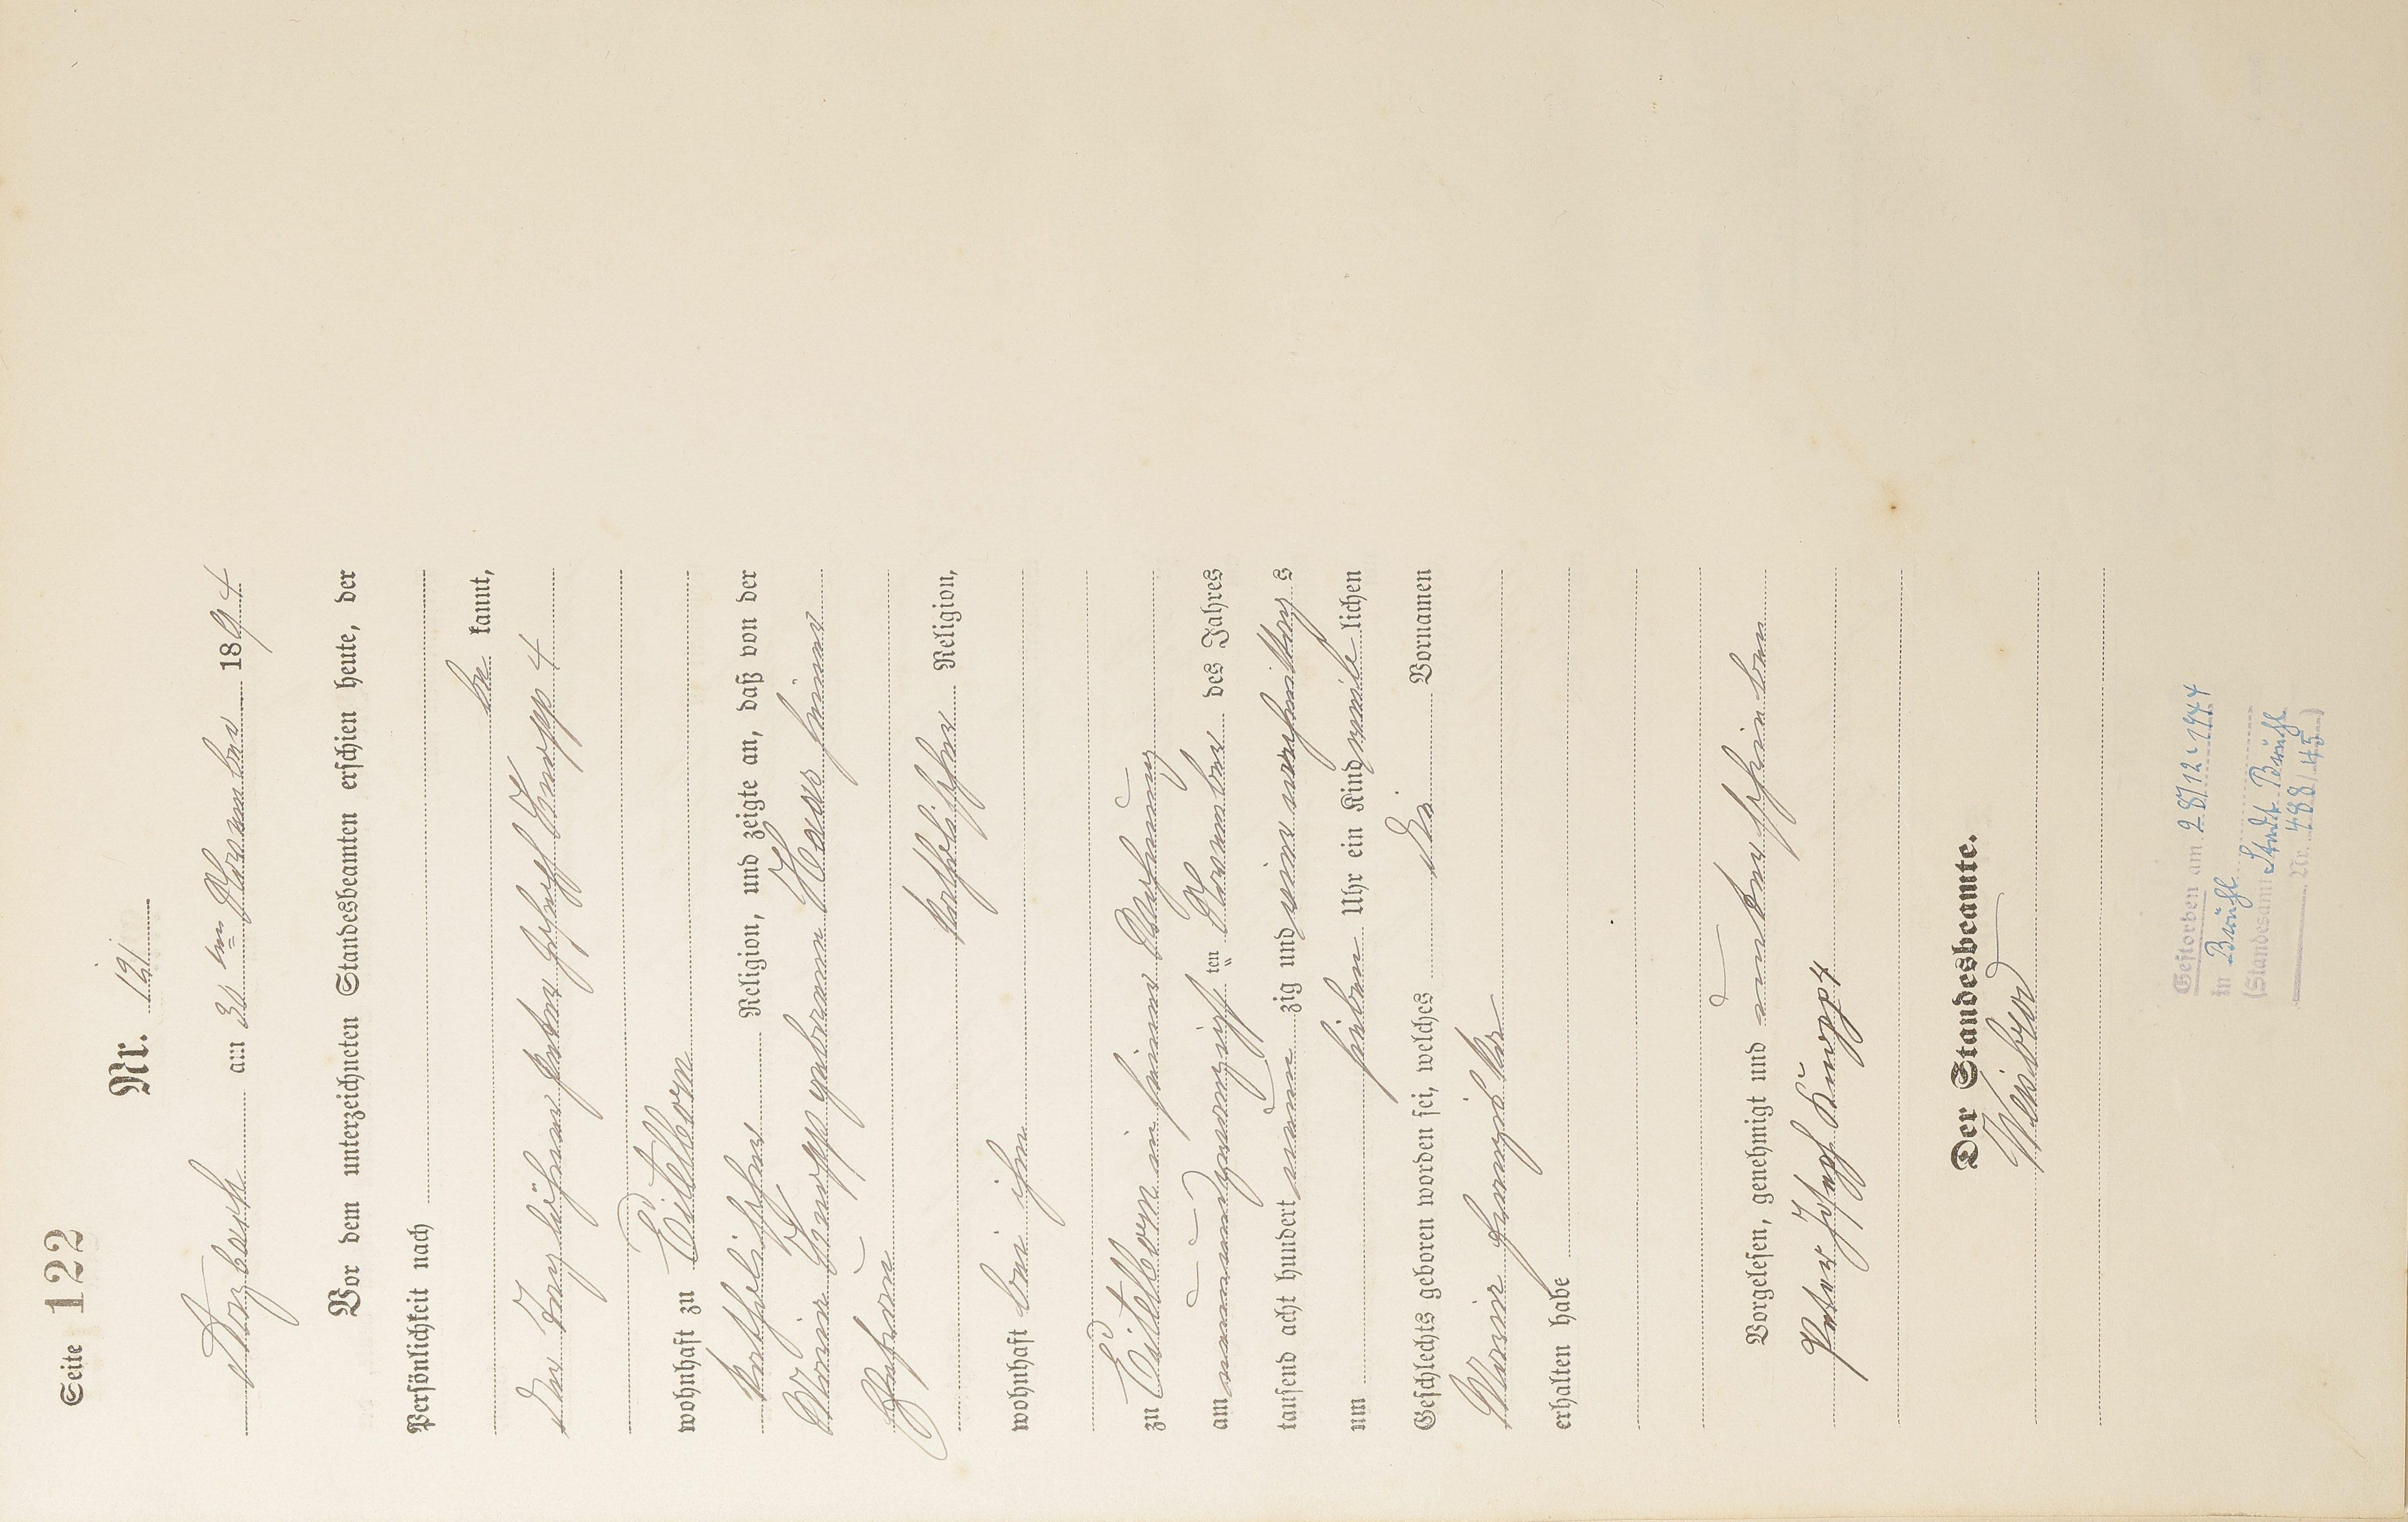 Seite 122
Nr. 121
Arzbach am 30ten November 1894
Vor dem unterzeichneten Standesbeamten erschien heute, der
Persönlichkeit nach
be kannt,
der Tagelöhner Peter Joseph Knopp 4
wohnhaft zu Eitelborn
katholischer Religion, und zeigte an, daß von der
Maria Knopp geborenen seiner
Ehefrau
katholischer Religion,
wohnhaft bei ihm
zu Eitelborn in seiner Wohnung
am neunundzwanzigsten November des Jahres
tausend acht hundert neunzig und vier vormittags
um sieben Uhr ein Kind weiblichen
Geschlechts geboren worden sei, welches die Vornamen
Maria
erhalten habe
Vorgelesen, genehmigt und unterschrieben
Peter Joseph Knopp 4
Der Standesbeamte.
Gestorben am 28/12.1944
in Brühl
(Standesamt Stadt Brühl
Nr. 488/45)